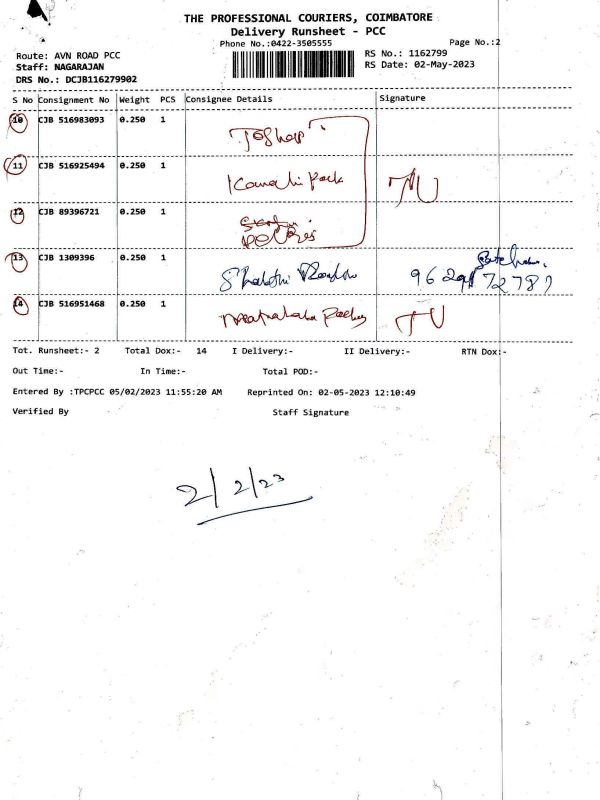 THE PROFESSIONAL COURIERS, COIMBATORE
Delivery Runsheet - PCC
Phone No.:0422-3505555 Page No.:2
Route: AVN ROAD PCC RS No.: 1162799
Staff: NAGARAJAN RS Date: 02-May-2023
DRS No.: DCJB116279902
S No Consignment No Weight PCS Consignee Details Signature
10 CJB 516983093 0.250 1
11 CJB 516925494 0.250 1
12 CJB 89396721 0.250 1
13 CJB 1309396 0.250 1
14 CJB 516951468 0.250 1
Tot. Runsheet:- 2 Total Dox:- 14 I Delivery:- II Delivery:- RTN Dox:-
Out Time:- In Time:- Total POD:-
Entered By :TPCPCC 05/02/2023 11:55:20 AM Reprinted On: 02-05-2023 12:10:49
Verified By Staff Signature
2/2/23